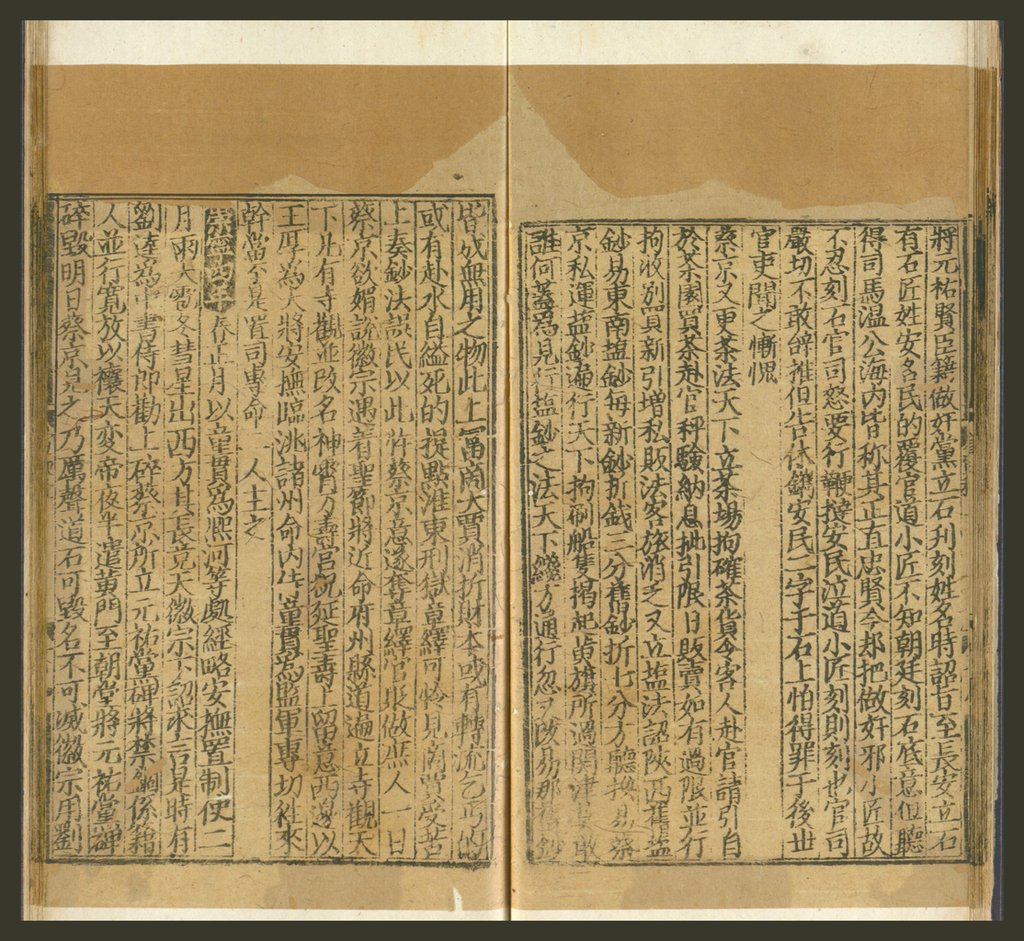 將元祐賢臣籍做奸黨立石刊刻姓名時詔旨至長安立石
有石匠姓安名民的覆官道小匠不知朝廷刻石底意但聽
得司馬溫公海內皆称其正直忠賢今却把做奸邪小匠故
不忍刻石官司怒要行鞭撻安民泣道小匠刻則刻也官司
嚴切不敢辞推但告休鐫安民二字于石上怕得罪于後世
官吏聞之慚愧
蔡京又更茶法天下立茶場拘榷茶貨令客人赴官請引自
於茶園買茶赴官秤驗納息批引限日販賣如有過限並行
拘收別買新引增私販法客旅消乏又立塩法詔陝西舊塩
鈔易東南塩鈔每新鈔折錢三分舊鈔折七分方聽換易蔡
京私運塩鈔遍行天下拘刷船隻揭起黄旗所過関津莫敢
誰何蓋為見行塩鈔之法天下纔方通行忽又改易那舊鈔
皆成無用之物此上富商大賈消折財本或有轉流乞丐的
或有赴水自縊死的提點淮東刑獄章繹可怜見商賈受苦
上奏鈔法誤民以此忤蔡京意遂奪章繹官泉做庶人一日
蔡京欲媚說徽宗遇着聖節將近命府州縣道遍立寺觀天
下凡有寺觀並改名神霄万壽宮祝延聖壽上留意西邊以
王厚為大將安撫臨洮諸州命內侍童貫為監軍專切往來
幹當 置司專命 人主之
崇寧四年 春正月以童貫為熙河等處經略安撫置制使二
月雨大雹冬彗星出西方其長竟天徽宗下詔求言是時有
劉逵為中書侍郎勸上碎蔡京所立元祐黨碑將禁錮係籍
人並行寬放以禳天变帝夜半遣黃門至朝堂將元祐黨碑
碎毀明日蔡京見之乃厲聲道石可毀名不可滅徽宗用劉